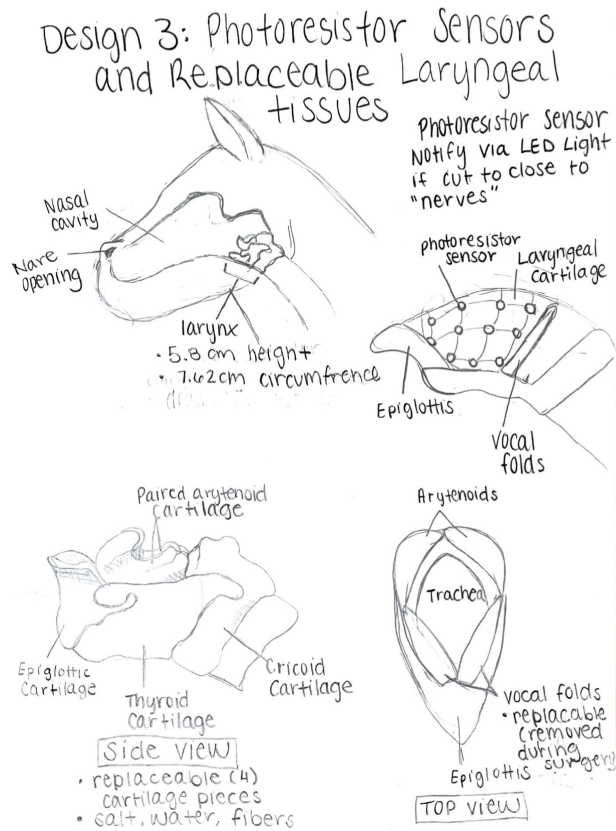 Design 3: Photoresistor Sensors
and Replaceable Laryngeal
tissues
Photoresistor Sensor
Notify via LED Light
if cut to close to
"nerves"
Nasal
cavity
Nare
opening
larynx
• 5.8 cm height
• 7.62cm circumfrence
photoresistor
sensor
Laryngeal
cartilage
Epiglottis
vocal
folds
Paired arytenoid
cartilage
Epiglottic
Cartilage
Thyroid
cartilage
Cricoid
Cartilage
Side view
• replaceable (4)
cartilage pieces
• salt, water, fibers
Arytenoids
Trachea
vocal folds
• replacable
(removed
during
surgery
Epiglottis
TOP VIEW